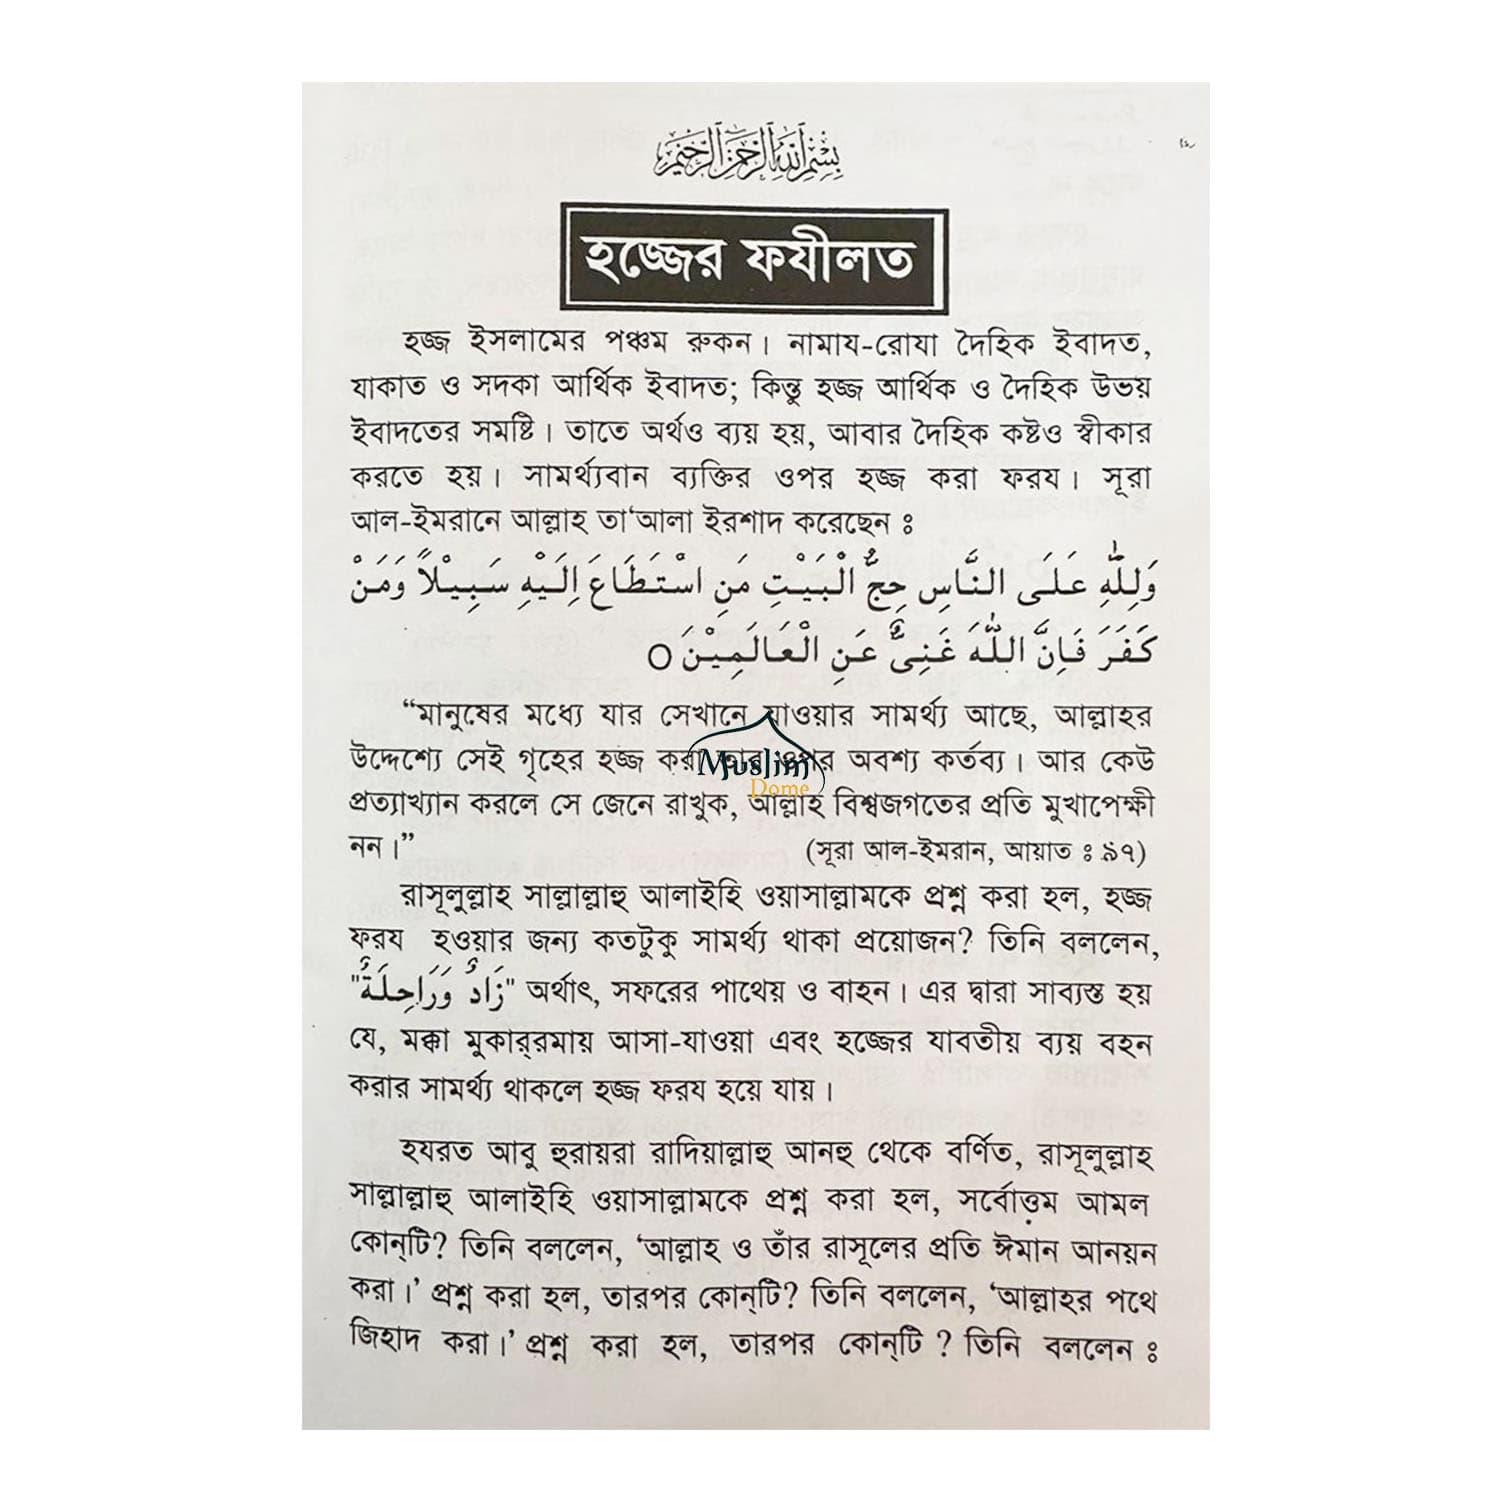 بِسْمِ اللهِ الرَّحْمٰنِ الرَّحِيْمِ
হজ্জের ফযীলত
হজ্জ ইসলামের পঞ্চম রুকন। নামায-রোযা দৈহিক ইবাদত,
যাকাত ও সদকা আর্থিক ইবাদত; কিন্তু হজ্জ আর্থিক ও দৈহিক উভয়
ইবাদতের সমষ্টি। তাতে অর্থও ব্যয় হয়, আবার দৈহিক কষ্টও স্বীকার
করতে হয়। সামর্থ্যবান ব্যক্তির ওপর হজ্জ করা ফরয। সূরা
আল-ইমরানে আল্লাহ তা‘আলা ইরশাদ করেছেন ঃ
وَلِلّٰهِ عَلَى النَّاسِ حِجُّ الْبَيْتِ مَنِ اسْتَطَاعَ اِلَيْهِ سَبِيْلاً وَمَنْ
كَفَرَ فَاِنَّ اللّٰهَ غَنِىٌّ عَنِ الْعَالَمِيْنَ ○
“মানুষের মধ্যে যার সেখানে যাওয়ার সামর্থ্য আছে, আল্লাহর
উদ্দেশ্যে সেই গৃহের হজ্জ করা তার ওপর অবশ্য কর্তব্য। আর কেউ
Muslim
Dome
প্রত্যাখ্যান করলে সে জেনে রাখুক, আল্লাহ বিশ্বজগতের প্রতি মুখাপেক্ষী
নন।” (সূরা আল-ইমরান, আয়াত ঃ ৯৭)
রাসূলুল্লাহ সাল্লাল্লাহু আলাইহি ওয়াসাল্লামকে প্রশ্ন করা হল, হজ্জ
ফরয হওয়ার জন্য কতটুকু সামর্থ্য থাকা প্রয়োজন? তিনি বললেন,
"زَادٌ وَرَاحِلَةٌ" অর্থাৎ, সফরের পাথেয় ও বাহন। এর দ্বারা সাব্যস্ত হয়
যে, মক্কা মুকার্‌রমায় আসা-যাওয়া এবং হজ্জের যাবতীয় ব্যয় বহন
করার সামর্থ্য থাকলে হজ্জ ফরয হয়ে যায়।
হযরত আবু হুরায়রা রাদিয়াল্লাহু আনহু থেকে বর্ণিত, রাসূলুল্লাহ
সাল্লাল্লাহু আলাইহি ওয়াসাল্লামকে প্রশ্ন করা হল, সর্বোত্তম আমল
কোন্‌টি? তিনি বললেন, ‘আল্লাহ ও তাঁর রাসূলের প্রতি ঈমান আনয়ন
করা।’ প্রশ্ন করা হল, তারপর কোন্‌টি? তিনি বললেন, ‘আল্লাহর পথে
জিহাদ করা।’ প্রশ্ন করা হল, তারপর কোন্‌টি ? তিনি বললেন ঃ